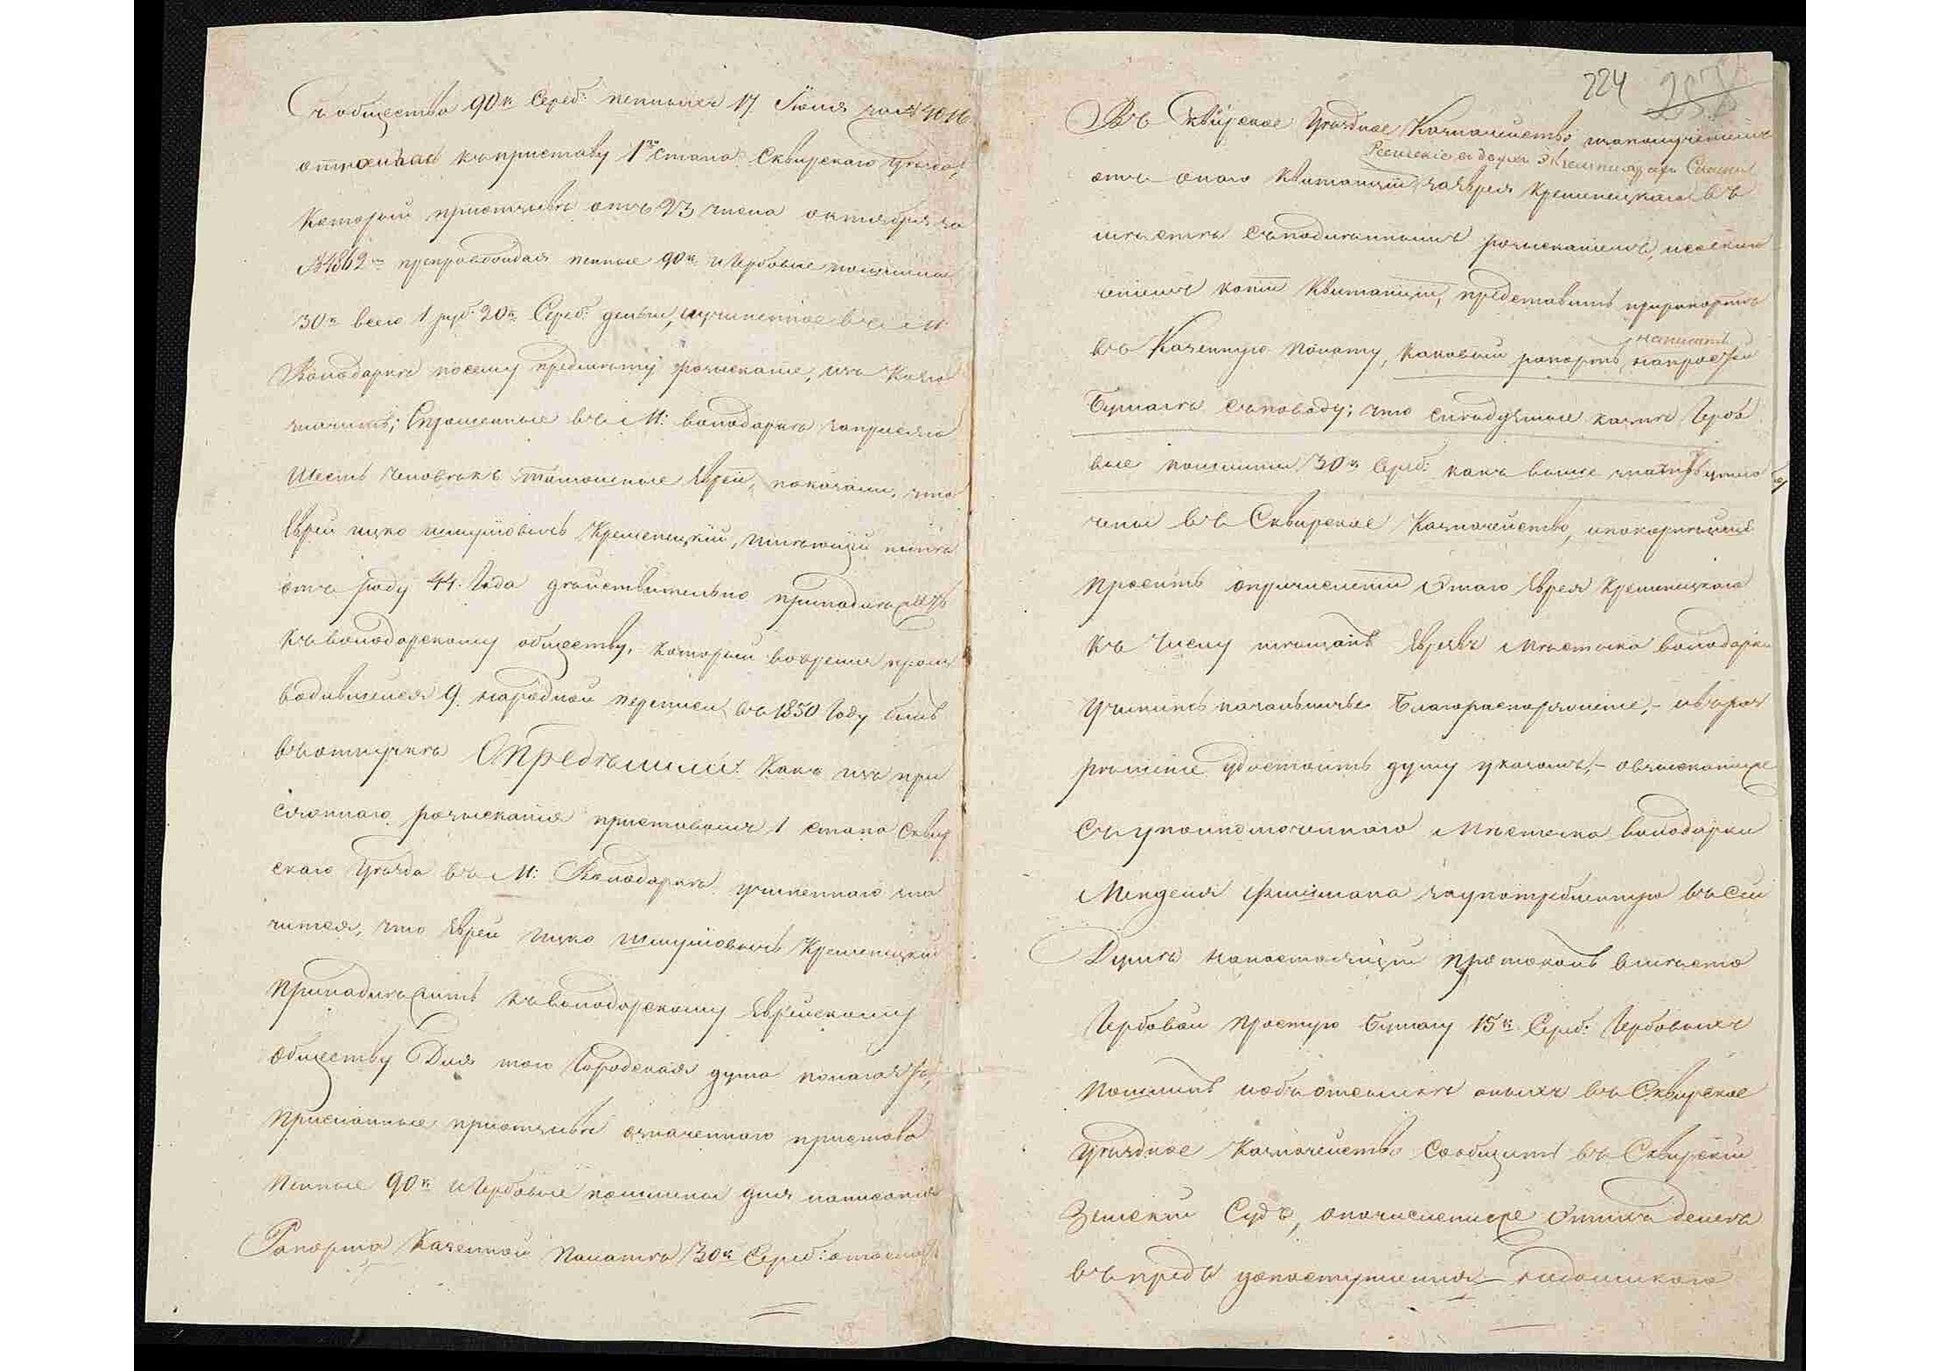 Съ общества 90 к Сереб: пенныхъ 17 Іюня за № 4016
отнесься къ приставу 1го стана Сквирскаго уезда,
который приставъ отъ 23 числа октября за
№ 4862 м препровождая пенные 90 к и Гербовые пошлины
30 к всего 1 руб. 20 к Сереб: деньги, учиненное въ М:
Володарке посему предмету розысканіе, изъ коего
значитъ; Спрошенные въ М: володарке за присягою
шесть человекъ тамошные Евреи, показали, что
Еврей Ицко Шмулiовичъ Кременецкій, имеющій ныне
отъ роду 44. Года действительно принадлежитъ
къ володарскому обществу, который вовремя произ
водившейся 9. народной переписи въ 1850 Году былъ
въ отлучке Определили: Какъ изъ при
сланнаго розысканія приставомъ 1 стана Сквир
скаго уезда въ М: Володарке учиненнаго зна
чится, что Еврей Ицко Шмулiовичъ Кременецкій
принадлежитъ къ володарскому Еврейскому
обществу Для того Городская дума полагаетъ,
присланные приставомъ означеннаго пристава
пенные 90 к и Гербовые пошлины для написанія
Рапорта Казенной Палате 30 к Сереб: отослать
224 257
Въ Сквирское уездное Казначейство, и по полученіи
Ревизские в двух экземплярах Списки
отъ онаго Квитанціи, за Еврея Кременецкаго въ
месте съ подлиннымъ розысканіемъ,
копіи Квитанціи, представить при рапорте
въ Казенную Палату, каковый рапортъ, написать на простой
бумаге съ поводу; что следуемые казне Гербо
вые пошлины 30 к Сереб: какъ выше значитъ
чены въ Сквирское Казначейство, и покорнейше
просить о причисленіи Этаго Еврея Кременецкаго
къ числу мещанъ Евреевъ местечка володарки
учинить начальничье Благораспоряженіе, и въ раз
решеніе удостоить думу указомъ; о взысканіи же
съ уполномоченнаго местечка володарки
Менделя Фишмана за употребленную въ сей
Думе на настоящій протоколъ вместо
Гербовой простую бумагу 15 к Сереб: Гербовыхъ
пошлинъ и объ отсылке оныхъ въ Сквирское
уездное Казначейство сообщить въ Сквирскій
Земскій Судъ, о начисленіи же Этихъ денегъ
въ предь до поступленія недоимкою